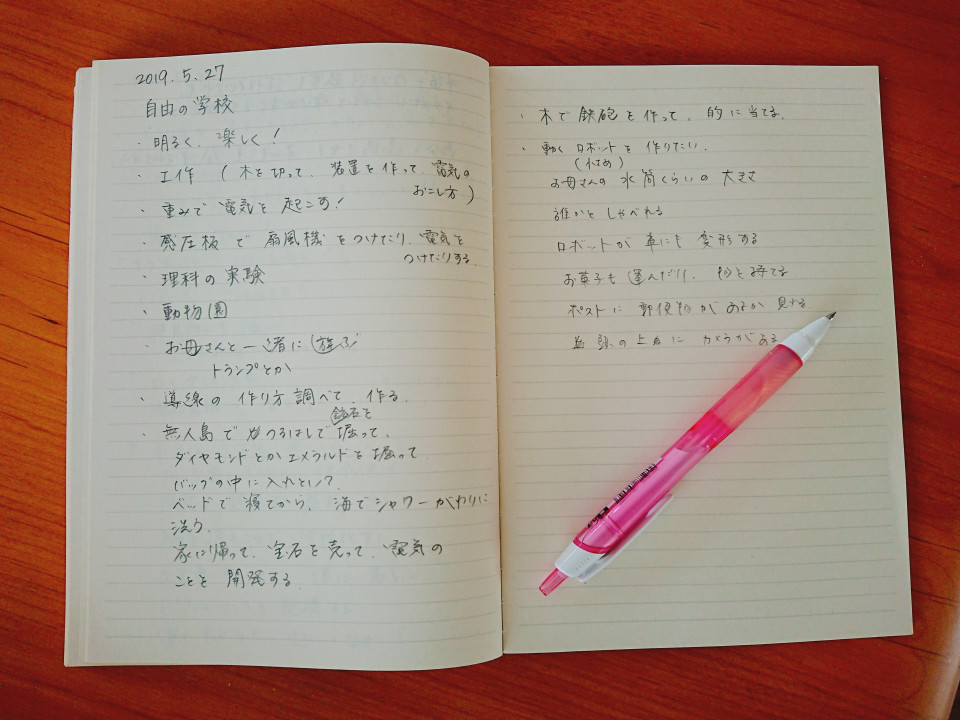 2019.5.27
自由の学校
・明るく、楽しく!
・工作 (木を切って、装置を作って、電気の
おこし方)
・重みで電気を起こす!
・感圧板で扇風機をつけたり、電気を
つけたりする。
・理科の実験
・動物園
・お母さんと一緒に遊ぶ
トランプとか
・導線の作り方調べて、作る。
鉱石を
・無人島でがつるはしで掘って、
ダイヤモンドとかエメラルドを掘って
バッグの中に入れといて
ベッドで寝てから、海でシャワーがわりに
洗う。
家に帰って、宝石を売って、電気の
ことを開発する。
・木で鉄砲を作って、的に当てる。
・動くロボットを作りたい。
お母さんの水筒くらいの大きさ
誰かとしゃべれる
ロボットが車にも変形する
お菓子も運んだり、物を持てる
ポストに郵便物があるか見する
頭の上にカメラがある